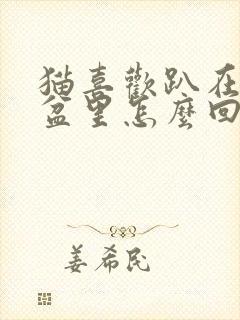 猫喜歡趴在
盆里怎麼回
姜希民